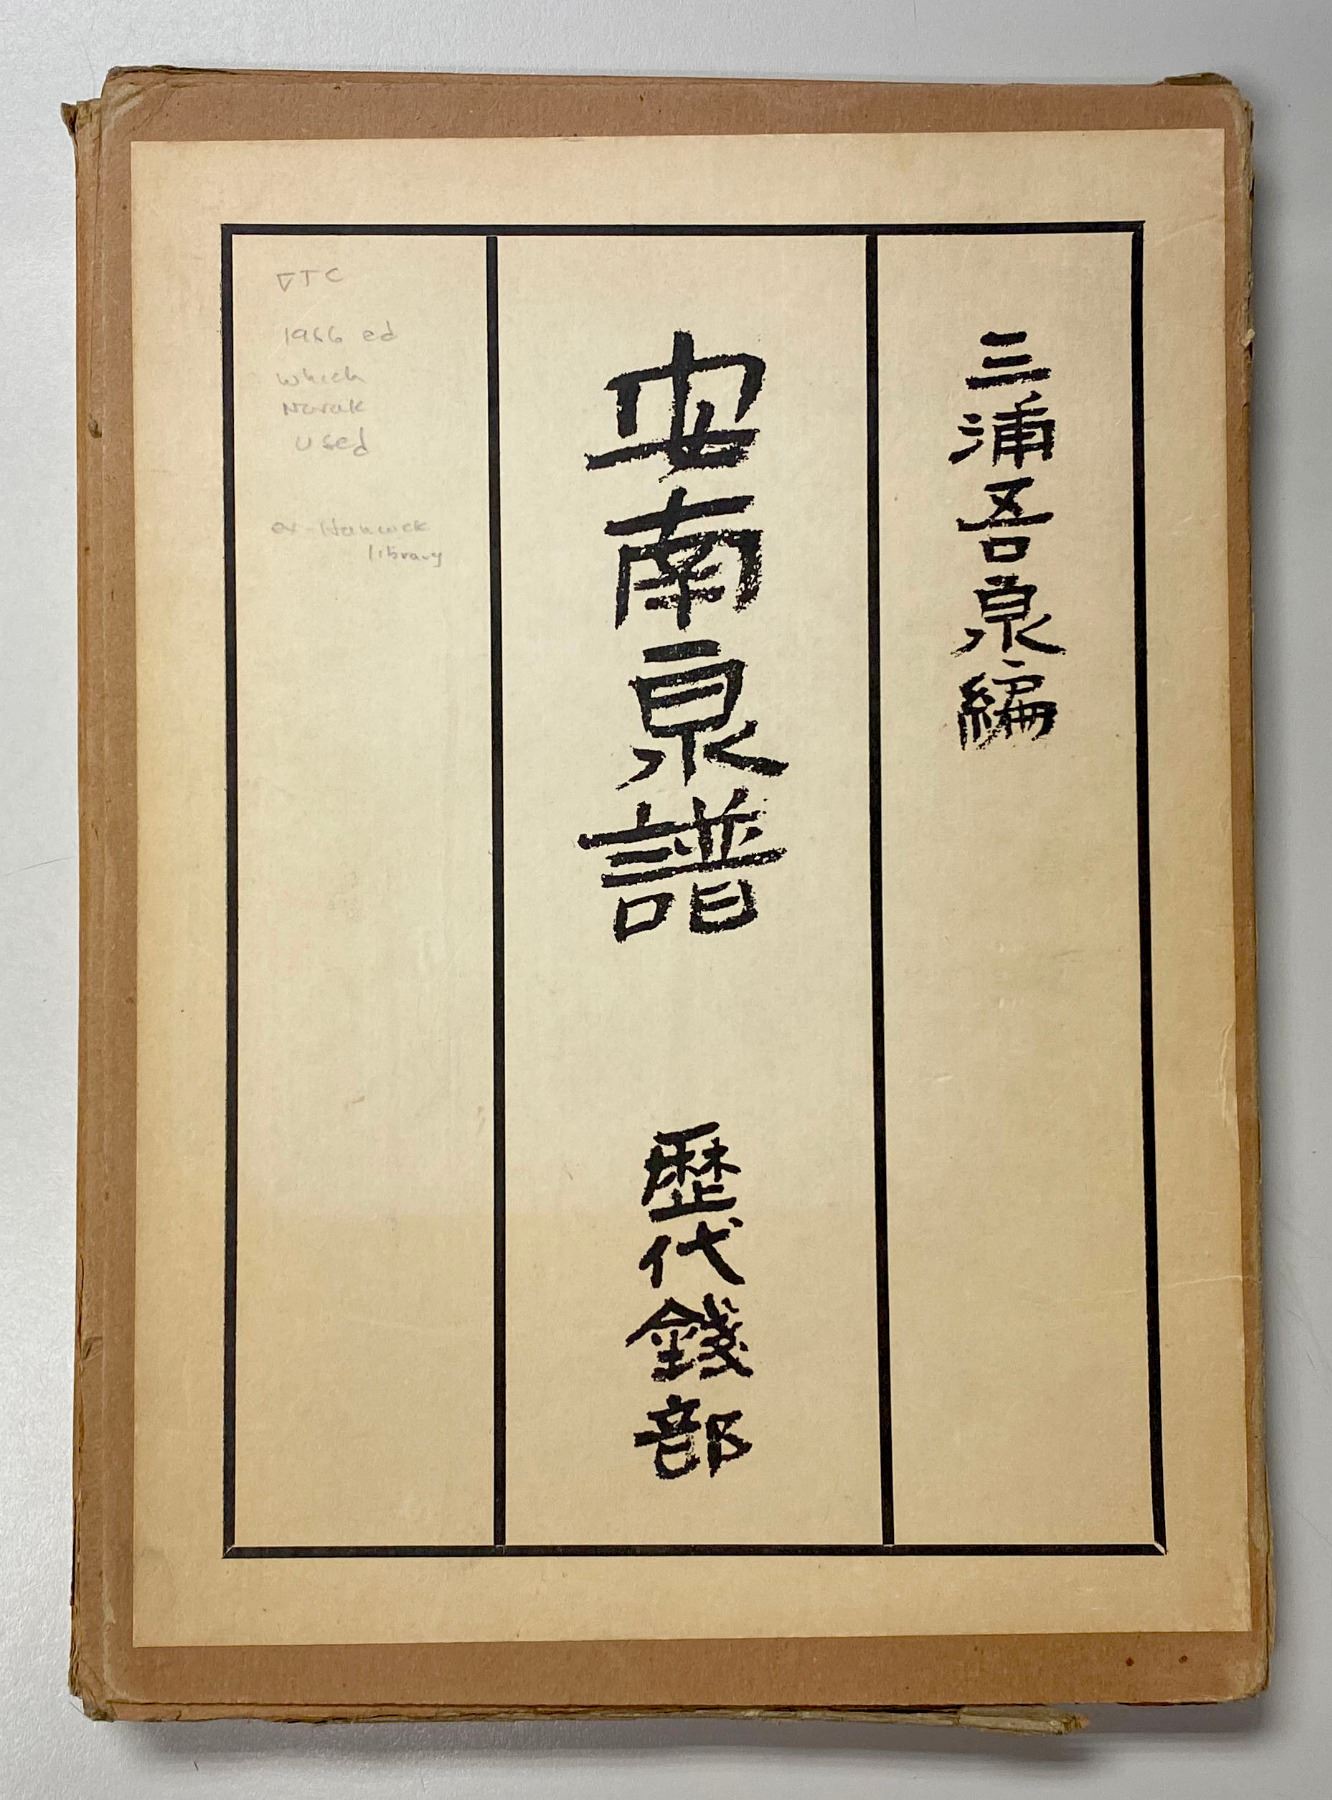 三浦吾泉編
安南泉譜 歴代錢部
VTC
1966 ed
which
Novak
used
ex-Hancock
library